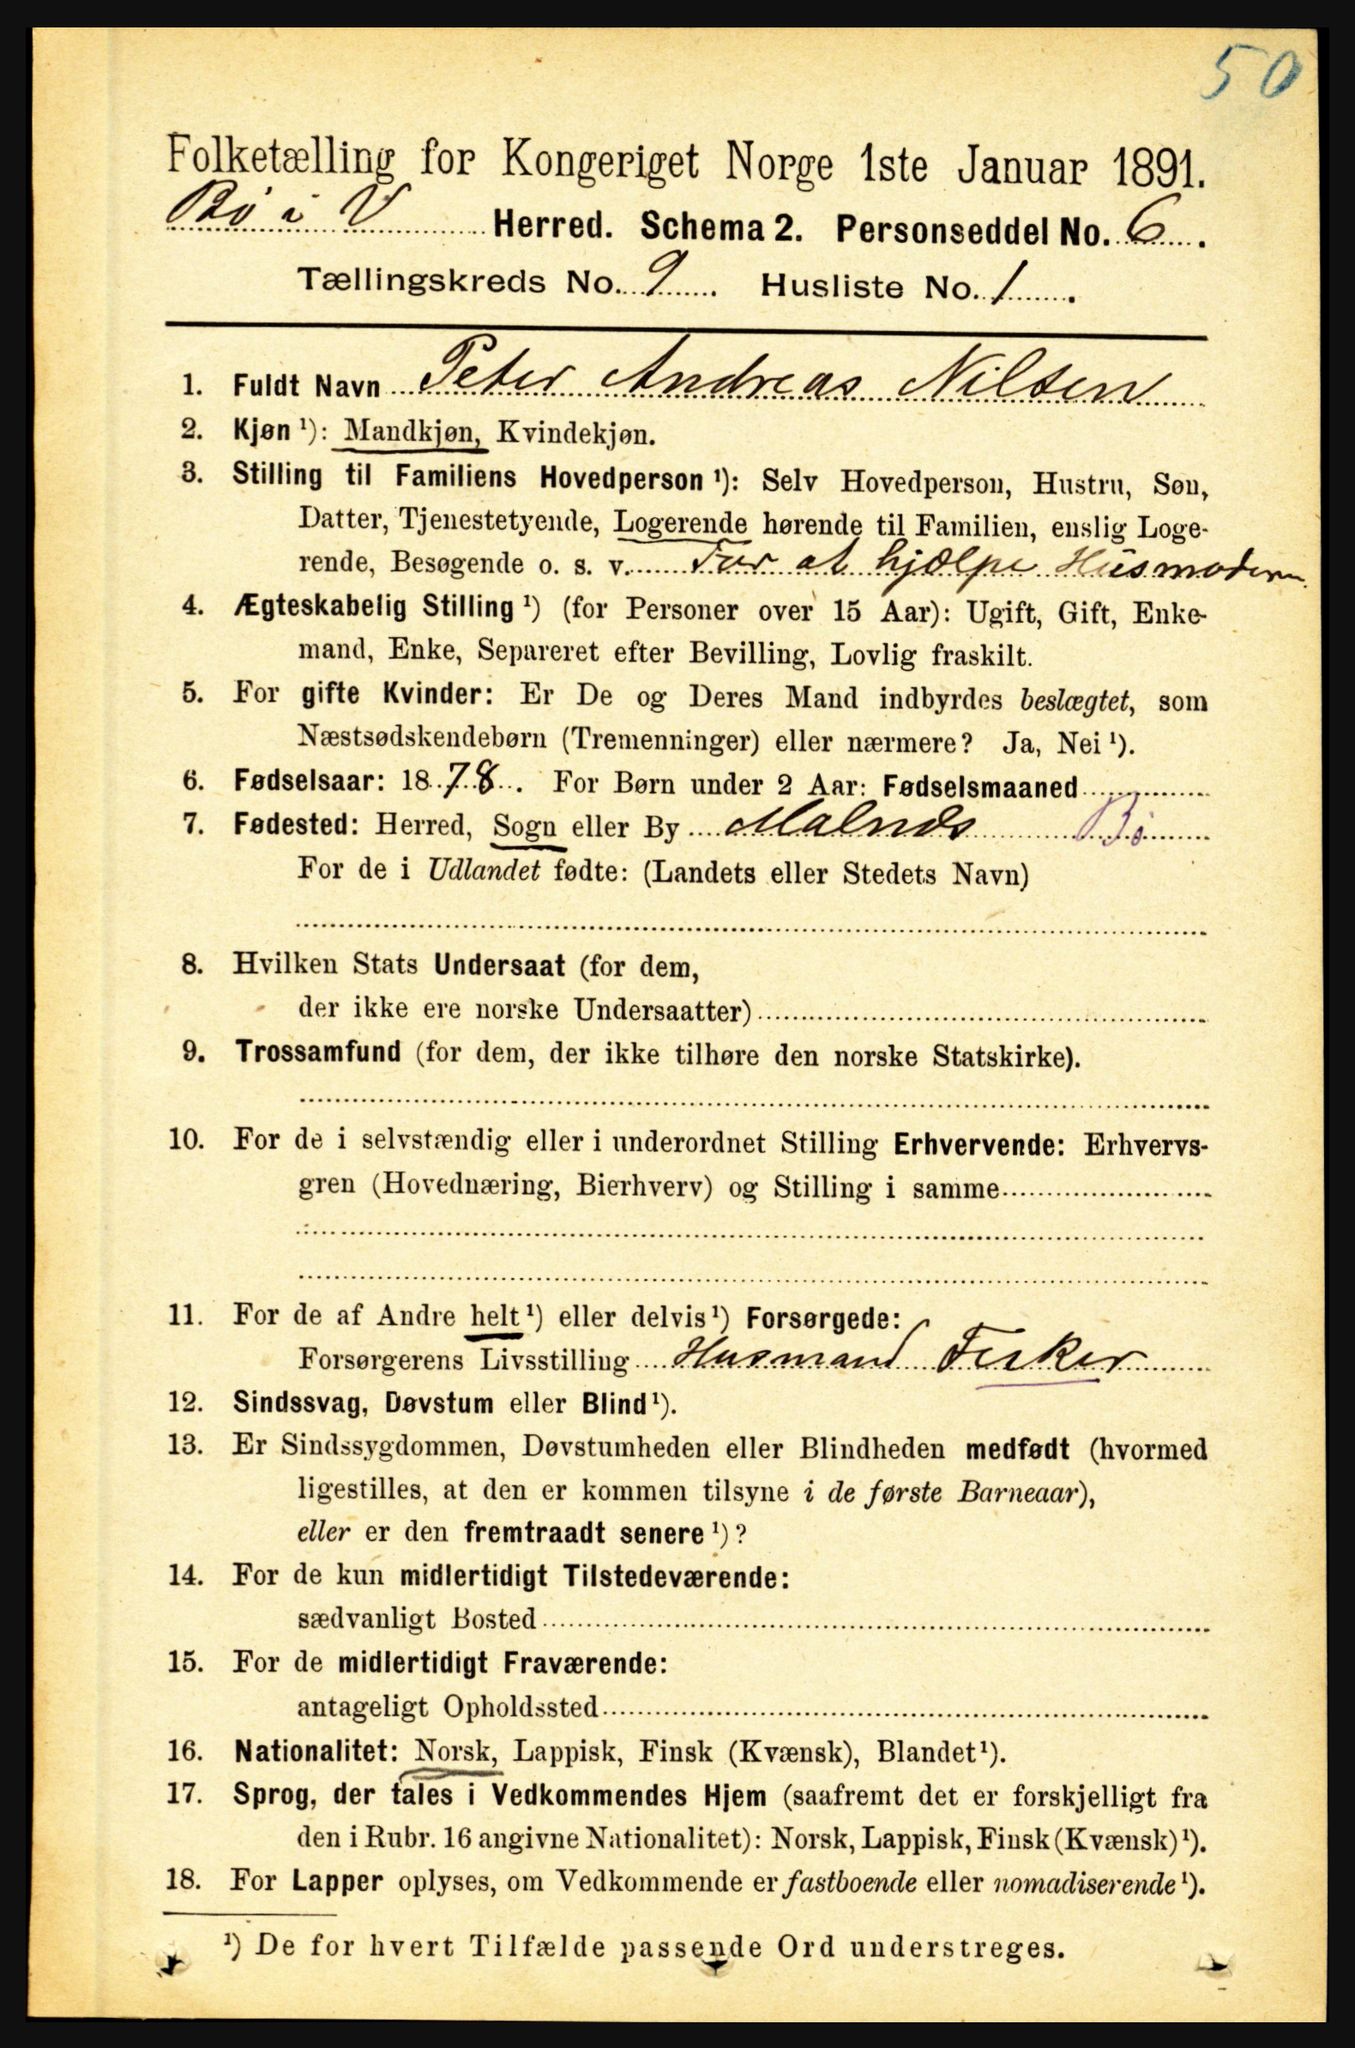 50
Folketælling for Kongeriget Norge 1ste Januar 1891.
Bø i V Herred. Schema 2. Personseddel No. 6.
Tællingskreds No. 9. Husliste No. 1.
1. Fuldt Navn Peter Andreas Nilsen
2. Kjøn ¹): Mandkjøn, Kvindekjøn.
3. Stilling til Familiens Hovedperson ¹): Selv Hovedperson, Hustru, Søn,
Datter, Tjenestetyende, Logerende hørende til Familien, enslig Loge-
rende, Besøgende o. s. v. For at hjælpe Husmoderen
4. Ægteskabelig Stilling ¹) (for Personer over 15 Aar): Ugift, Gift, Enke-
mand, Enke, Separeret efter Bevilling, Lovlig fraskilt.
5. For gifte Kvinder: Er De og Deres Mand indbyrdes beslægtet, som
Næstsødskendebørn (Tremenninger) eller nærmere? Ja, Nei ¹).
6. Fødselsaar: 1878. For Børn under 2 Aar: Fødselsmaaned
7. Fødested: Herred, Sogn eller By Malnes Bø
For de i Udlandet fødte: (Landets eller Stedets Navn)
8. Hvilken Stats Undersaat (for dem,
der ikke ere norske Undersaatter)
9. Trossamfund (for dem, der ikke tilhøre den norske Statskirke).
10. For de i selvstændig eller i underordnet Stilling Erhvervende: Erhvervs-
gren (Hovednæring, Bierhverv) og Stilling i samme
11. For de af Andre helt ¹) eller delvis ¹) Forsørgede:
Forsørgerens Livsstilling Husmand Fisker
12. Sindssvag, Døvstum eller Blind ¹).
13. Er Sindssygdommen, Døvstumheden eller Blindheden medfødt (hvormed
ligestilles, at den er kommen tilsyne i de første Barneaar),
eller er den fremtraadt senere ¹)?
14. For de kun midlertidigt Tilstedeværende:
sædvanligt Bosted
15. For de midlertidigt Fraværende:
antageligt Opholdssted
16. Nationalitet: Norsk, Lappisk, Finsk (Kvænsk), Blandet ¹).
17. Sprog, der tales i Vedkommendes Hjem (saafremt det er forskjelligt fra
den i Rubr. 16 angivne Nationalitet): Norsk, Lappisk, Finsk (Kvænsk) ¹).
18. For Lapper oplyses, om Vedkommende er fastboende eller nomadiserende ¹).
¹) De for hvert Tilfælde passende Ord understreges.